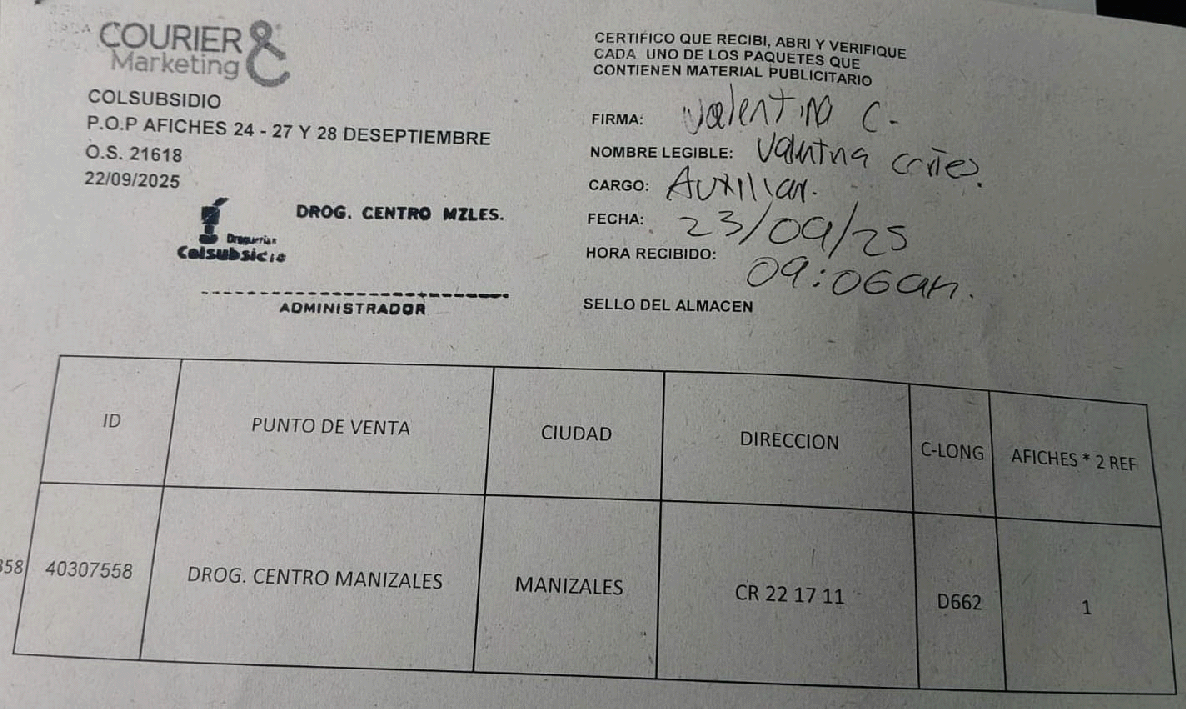 COURIER
Marketing
COLSUBSIDIO
P.O.P AFICHES 24 - 27 Y 28 DESEPTIEMBRE
O.S. 21618
22/09/2025
DROG. CENTRO MZLES.
Droguerías
Colsubsidio
ADMINISTRADOR
CERTIFICO QUE RECIBI, ABRI Y VERIFIQUE
CADA UNO DE LOS PAQUETES QUE
CONTIENEN MATERIAL PUBLICITARIO
FIRMA: Valentina C.
NOMBRE LEGIBLE: Valentina Cortes.
CARGO: Auxiliar.
FECHA: 23/09/25
HORA RECIBIDO: 09:06am.
SELLO DEL ALMACEN
ID PUNTO DE VENTA CIUDAD DIRECCION C-LONG AFICHES * 2 REF
358 40307558 DROG. CENTRO MANIZALES MANIZALES CR 22 17 11 D662 1